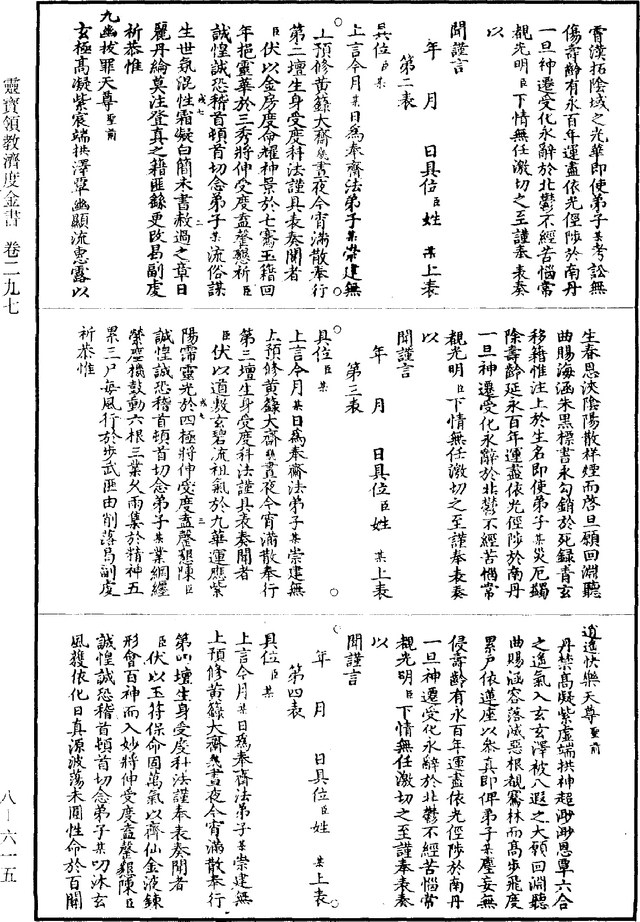 霄漢拓陰域之光華即使弟子某考訟無
傷壽齡有永百年運盡依光徑陟於南丹
一旦神遷受化永辭於北鬱不經苦惱常
覩光明臣下情無任激切之至謹奉表奏
以
聞謹言
年 月 日具位臣姓 某上表
第二表
具位臣某
上言今月某日為奉齋法弟子某崇建無
上預修黃籙大齋幾晝夜今宵滿散奉行
第二壇生身受度科法謹具表奏聞者
臣伏以金房度命耀神景於七騫玉籍回
年挹靈華於三秀將伸受度盍罄懇祈臣
誠惶誠恐稽首頓首切念弟子某流俗謀
生世氛混性霜凝白簡未書赦過之章日
麗丹綸莫注登真之籍匪緣更改曷副虔
祈恭惟
九幽拔罪天尊聖前
玄極高凝紫宸端拱澤覃幽顯流恵露以
生春恩浹陰陽散祥煙而啓旦願回淵聽
曲賜海涵朱黑標書永勾銷於死錄青玄
移籍惟注上於生名即使弟子某災厄蠲
除壽齡延永百年運盡依光徑陟於南丹
一旦神遷受化永辭於北鬱不經苦惱常
覩光明臣下情無任激切之至謹奉表奏
以
聞謹言
年 月 日具位臣姓 某上表
第三表
具位臣某
上言今月某日為奉齋法弟子某崇建無
上預修黃籙大齋幾晝夜今宵滿散奉行
第三壇生身受度科法謹具表奏聞者
臣伏以道敷玄碧流祖氣於九華運應紫
陽霈靈光於四極將伸受度盍罄懇陳臣
誠惶誠恐稽首頓首切念弟子某業網纏
縈塵機鼓動六根三業久雨集於精神五
累三尸每風行於步武匪由削落曷副虔
祈恭惟
逍遙快樂天尊聖前
丹禁高凝紫虛端拱神超渺渺恩覃六合
之遙氣入玄玄澤被八遐之大願回淵聽
曲賜涵容落滅惡根覩騫林而高步飛度
累尸依蓮座以參真即俾弟子某塵妄無
侵壽齡有永百年運盡依光徑陟於南丹
一旦神遷受化永辭於北鬱不經苦惱常
覩光明臣下情無任激切之至謹奉表奏
以
聞謹言
年 月 日具位臣姓 某上表
第四表
具位臣某
上言今月某日為奉齋法弟子某崇建無
上預修黃籙大齋幾晝夜今宵滿散奉行
第四壇生身受度科法謹奉表奏聞者
臣伏以玉符保命固萬氣以齊仙金液鍊
形會百神而入妙將伸受度盍罄懇陳臣
誠惶誠恐稽首頓首切念弟子某叨沐玄
風獲依化日真源波蕩未固性命於百關
靈寶領教濟度金書 卷二九七
八－六一五